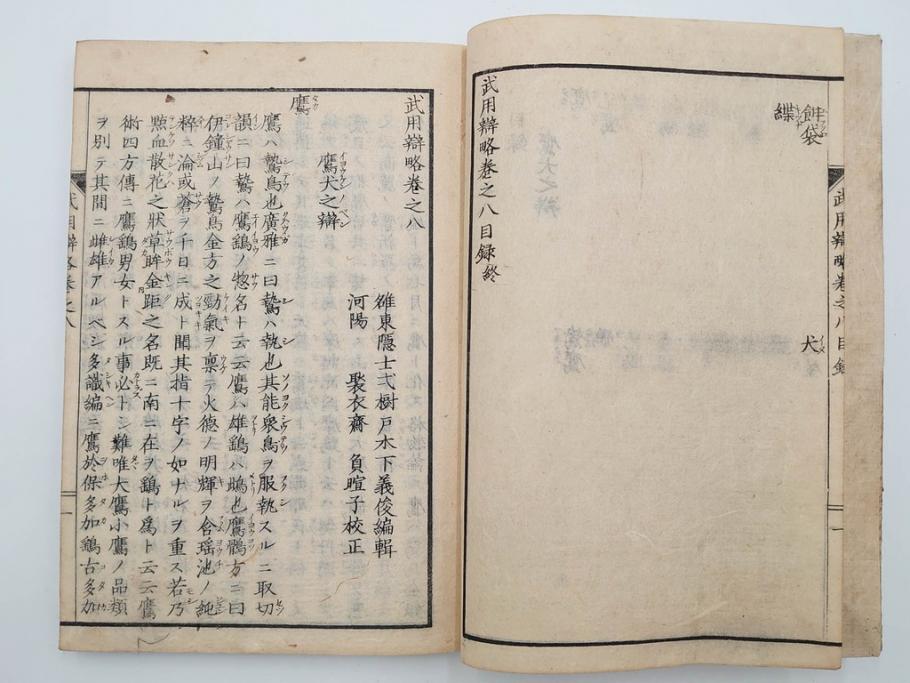 餌袋
緤
犬
武用辯略巻之八目録終
武用辯略巻之八目録
武用辯略巻之八
鷹犬之辯
雒東隠士弌樹戸木下義俊編輯
河陽 褧衣齋負暄子校正
鷹
鷹ハ鷙鳥也廣雅ニ曰鷙ハ執也其能衆鳥ヲ服執スルニ取切
韻ニ曰鷙ハ鷹鷂ノ惣名ト云云鷹ハ雄鷂ハ鴟也鷹鶻方ニ曰
伊鐘山ノ鷙鳥金方之勁氣ヲ禀テ火德ノ明輝ヲ含瑶池ノ純
粹ニ淪或蒼ヲ千日ニ成ト聞其指十字ノ如ナルヲ重ス若乃
㸃血散花之状草眸金距之名既ニ南ニ在ヲ鷂ト爲ト云云鷹
術四方傳ニ鷹鷂男女トスル事必トシ難唯大鷹小鷹ノ品類
ヲ別テ其間ニ雌雄アルヘシ多識編ニ鷹於保多加鷂古多加
武用辯略巻之八